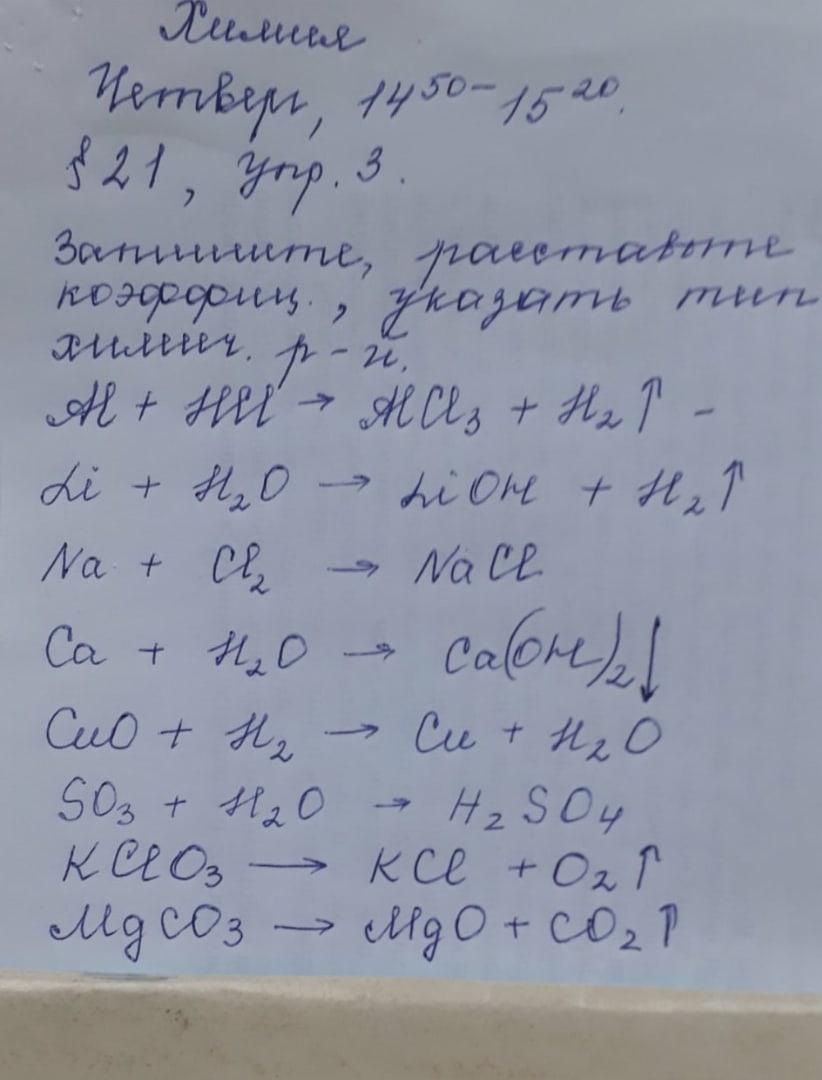 Химия
Четверг, 14⁵⁰⁻15²⁰.
§ 21, упр. 3.
Запишите, расставьте
коэффиц., указать тип
химич. р-й.
Al + HCl → AlCl₃ + H₂↑ -
Li + H₂O → LiOH + H₂↑
Na + Cl₂ → NaCl
Ca + H₂O → Ca(OH)₂↓
CuO + H₂ → Cu + H₂O
SO₃ + H₂O → H₂SO₄
KClO₃ → KCl + O₂↑
MgCO₃ → MgO + CO₂↑